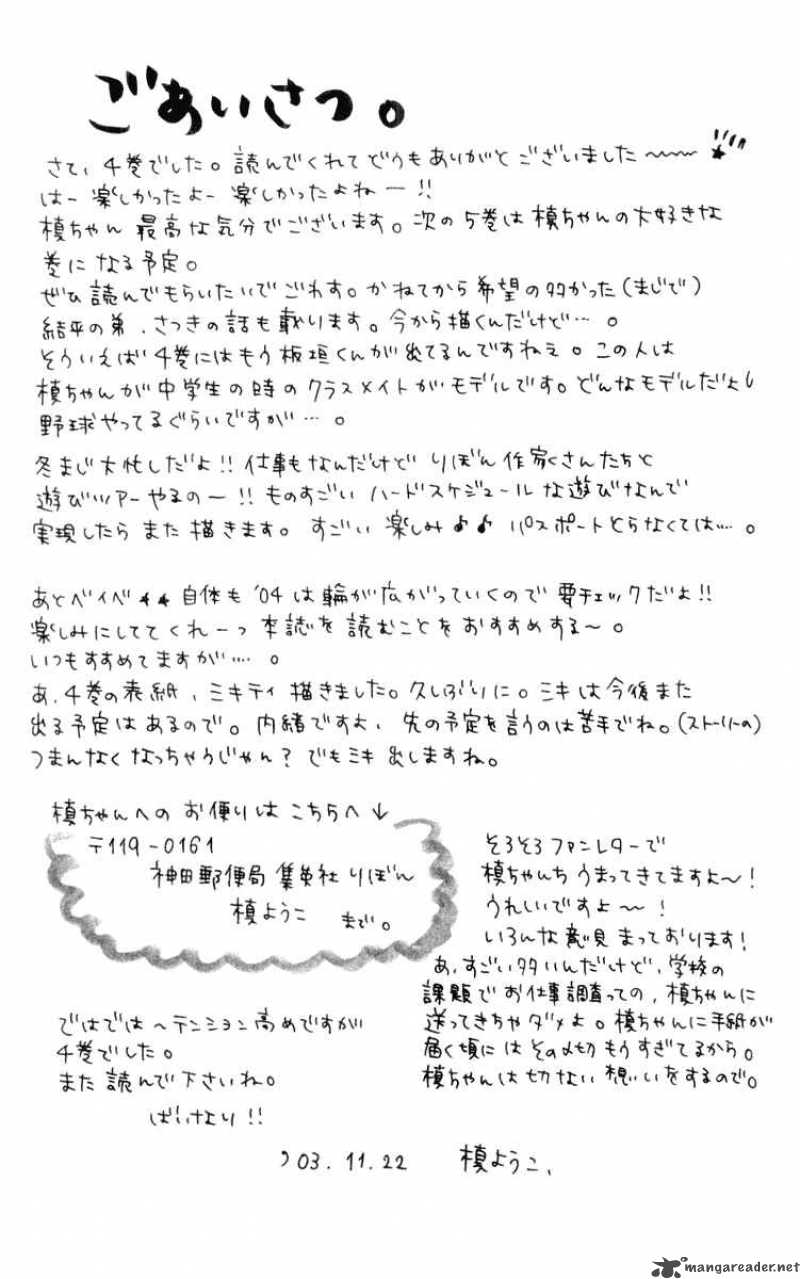 ごあいさつ。
さて、4巻でした。読んでくれてどうもありがとございました〜〜〜
はー楽しかったよー楽しかったよねー!!
槙ちゃん 最高な気分でございます。次の5巻は槙ちゃんの大好きな
巻になる予定。
ぜひ読んでもらいたいでごわす。かねてから希望の多かった(まじで)
結平の弟、さつきの話も載ります。今から描くんだけど…。
そういえば4巻にはもう板垣くんが出てるんですねえ。この人は
槙ちゃんが中学生の時のクラスメイトがモデルです。どんなモデルだよ
野球やってるぐらいですが…。
冬まじ大忙しだよ!!仕事もなんだけど りぼん作家さんたちと
遊びツアーやるのー!!ものすごい ハードスケジュールな遊びなんで
実現したら また描きます。すごい 楽しみ♪♪ パスポートとらなくては…。
あとベイベ★★自体も '04は輪が広がっていくので 要チェックだよ!!
楽しみにしててくれーっ 本誌を読むことをおすすめする〜。
いつもすすめてますが…。
あ、4巻の表紙、ミキティ描きました。久しぶりに。ミキは今後また
出る予定はあるので。内緒ですよ、先の予定を言うのは苦手でね。(ストーリーの)
つまんなくなっちゃうじゃん?でもミキ出しますね。
槙ちゃんへの お便りは こちらへ↓
〒119-0161
神田郵便局 集英社 りぼん
槙ようこ まで。
そろそろファンレターで
槙ちゃんち うまってきてますよ〜!
うれいいですよ〜!
いろんな意見 まっております!
あ、すごい多いんだけど、学校の
課題で お仕事調査っての、槙ちゃんに
送ってきちゃダメよ。槙ちゃんに手紙が
届く頃には その〆切もうすぎてるから。
槙ちゃんは切ない 想いをするので。
ではでは〜テンション高めですが
4巻でした。
また 読んで下さいね。
ばいなり!!
'03.11.22 槙ようこ、
mangareader.net